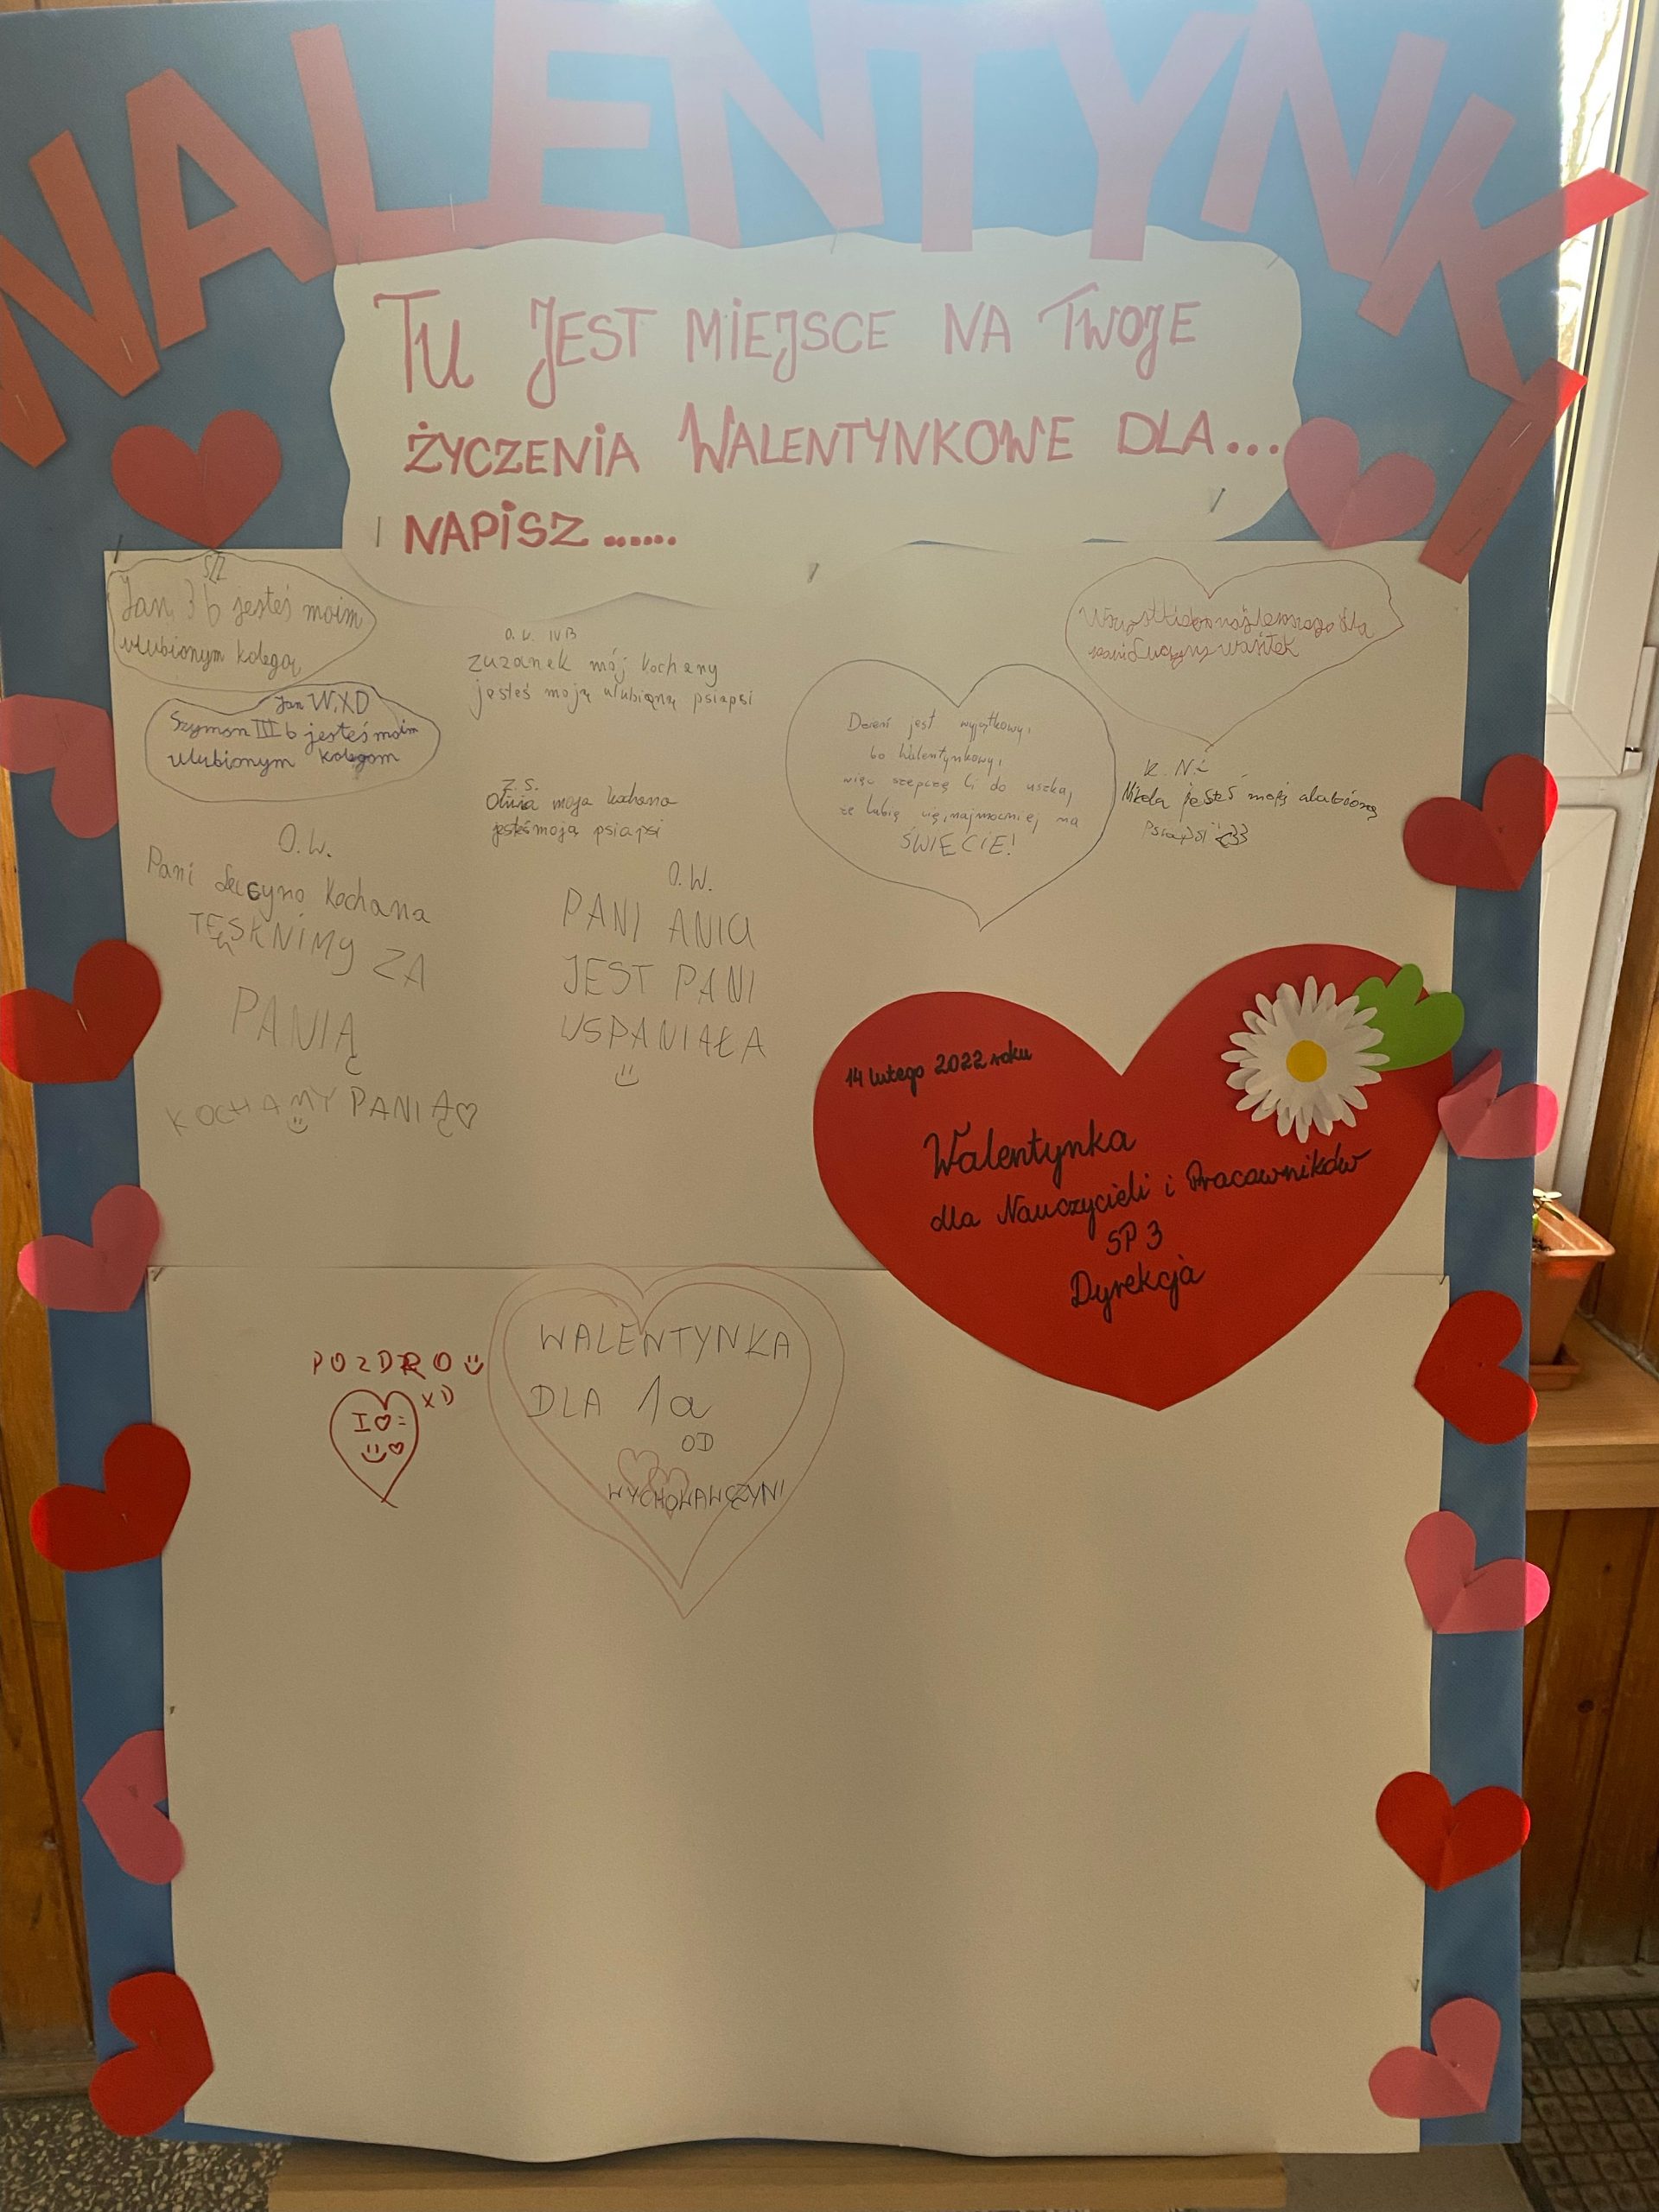 WALENTYNKI
TU JEST MIEJSCE NA TWOJE
ŻYCZENIA WALENTYNKOWE DLA...
NAPISZ......
Jan 3 b jesteś moim
ulubionym kolegą
Jan W. XD
Szymon III b jesteś moim
ulubionym kolegom
O. W. IVB
zuzanek mój kochany
jesteś moją ulubioną psiapsi
Z.S.
Oliwia moja kochana
jesteś moją psiapsi
Dzień jest wyjątkowy,
bo Walentynkowy,
więc szepczę Ci do uszka,
że lubię cię najmocniej na
ŚWIECIE!
K. N.
Nikola jesteś moją
Psiapsi <33
O.W.
Pani kochana
TĘSKNIMY ZA
PANIĄ
KOCHAMY PANIĄ♡
O.W.
PANI ANIA
JEST PANI
USPANIAŁA
14 lutego 2022 roku
Walentynka
dla Nauczycieli i Pracowników
SP 3
Dyrekcja
POZDRO
XD
I ♡ =
WALENTYNKA
DLA 1a
OD
WYCHOWAWCZYNI